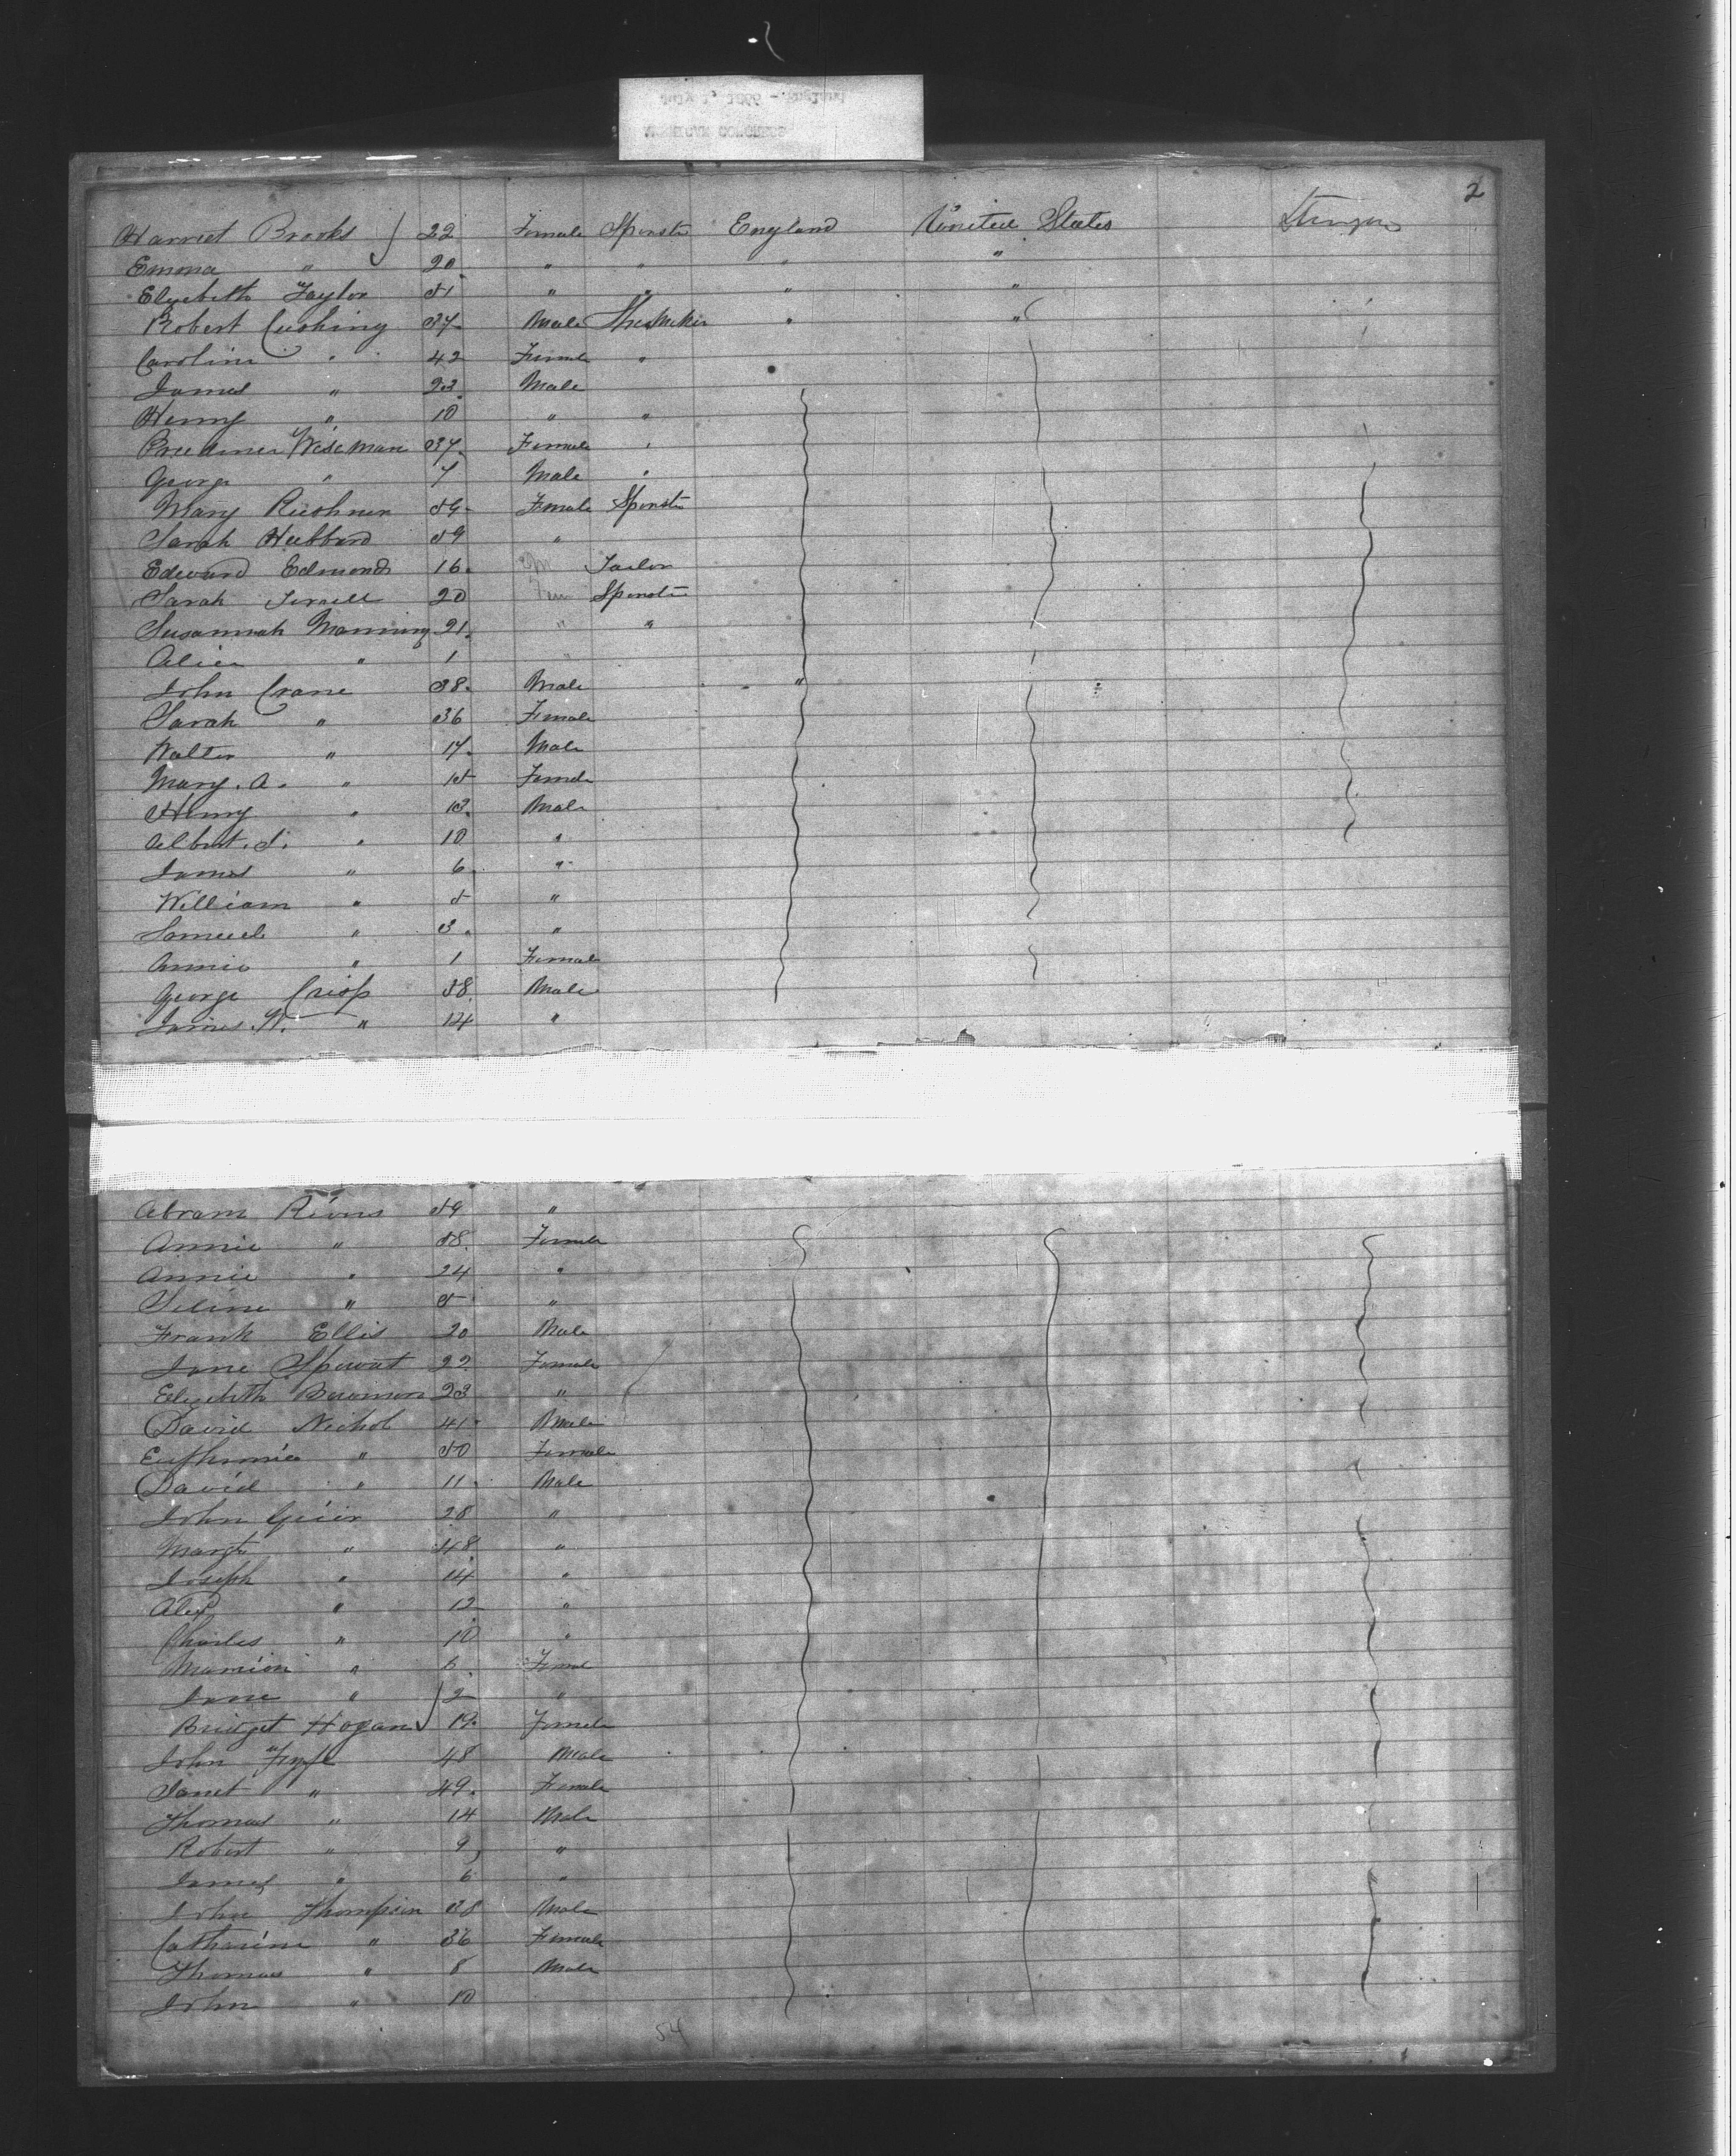 2
Harriet Brooks 22 Female Spinster England United States
Emma " 20 " " " "
Elizabeth Taylor 51 " " " "
Robert Cushing 37 Male ShoeMaker " "
Caroline " 42 Female "
James " 23 Male
Henry " 10 " "
Wiseman 37 Female "
George " 7 Male "
Mary 59 Female Spinster
Sarah Hubbard 59 "
Edward Edmonds 16 Tailor
Sarah 20 Fem Spinster
Susannah Manning 21 " "
Alice " 1 "
John Crane 38 Male "
Sarah " 36 Female
Walter " 17 Male
Mary. A. " 15 Female
Henry " 13 Male
Albert. S. " 10 "
James " 6 "
William " 5 "
Samuel " 3 "
Annie " 1 Female
George Crisp 38 Male
James. W. " 14 "
Abram 59 "
Annie " 58 Female
Annie " 24 "
Selina " 5 "
Frank Ellis 20 Male
Jane 22 Female
Elizabeth Bowman 23 "
David Nichol 41 Male
Euphemia " 50 Female
David " 11 Male
John 28 "
Margt " 48 "
Joseph " 14 "
Alex " 12 "
Charles " 10 "
Marrion " 6 Female
Jane " 2 "
Bridget Hogan 19 Female
John Fyfe 48 Male
Janet " 49 Female
Thomas " 14 Male
Robert " 9 "
James " 6 "
John Thompson 38 Male
Catharine " 36 Female
Thomas " 8 Male
John " 10
54